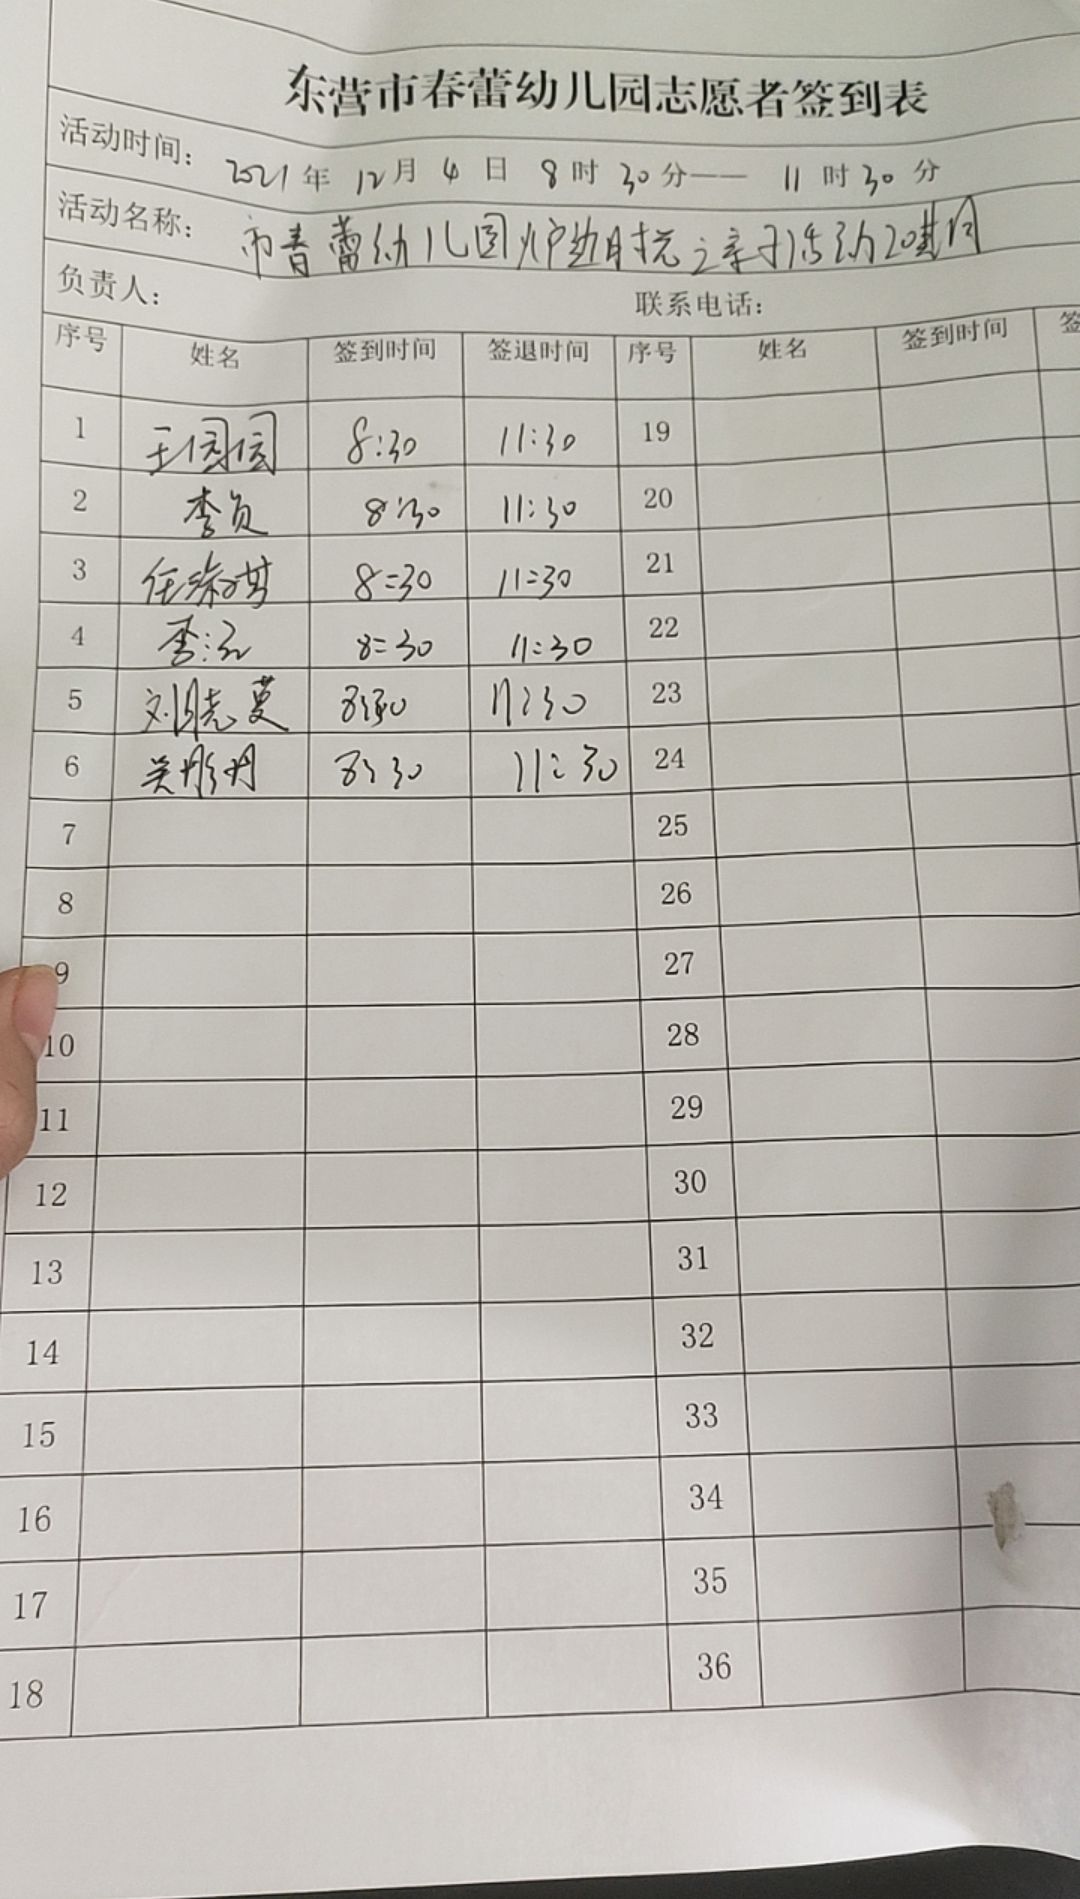 东营市春蕾幼儿园志愿者签到表
活动时间： 2021 年 12 月 4 日 8 时 30 分—— 11 时 30 分
活动名称： 市春蕾幼儿园炉边时光之亲子活动20期
负责人： 联系电话：
序号 姓名 签到时间 签退时间 序号 姓名 签到时间 签
1 王园园 8:30 11:30 19
2 李 8:30 11:30 20
3 任 8:30 11:30 21
4 李 8:30 11:30 22
5 刘晓蔓 8:30 11:30 23
6 吴彤彤 8:30 11:30 24
7 25
8 26
9 27
10 28
11 29
12 30
13 31
14 32
15 33
16 34
17 35
18 36